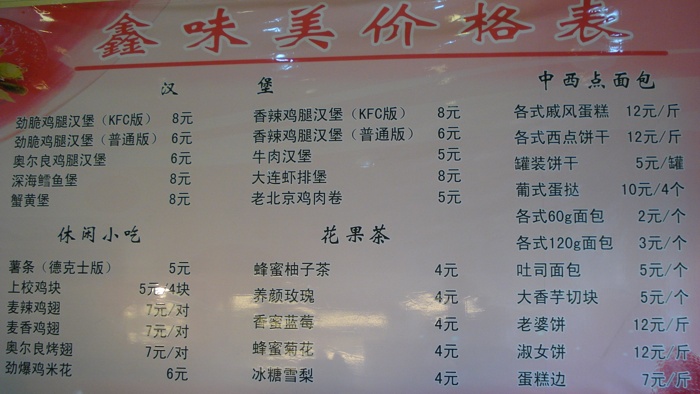 鑫味美价格表
汉 堡
劲脆鸡腿汉堡（KFC版） 8元
劲脆鸡腿汉堡（普通版） 6元
奥尔良鸡腿汉堡 6元
深海鳕鱼堡 8元
蟹黄堡 8元
香辣鸡腿汉堡（KFC版） 8元
香辣鸡腿汉堡（普通版） 6元
牛肉汉堡 5元
大连虾排堡 8元
老北京鸡肉卷 5元
休闲小吃
薯条（德克士版） 5元
上校鸡块 5元/4块
麦辣鸡翅 7元/对
麦香鸡翅 7元/对
奥尔良烤翅 7元/对
劲爆鸡米花 6元
花果茶
蜂蜜柚子茶 4元
养颜玫瑰 4元
香蜜蓝莓 4元
蜂蜜菊花 4元
冰糖雪梨 4元
中西点面包
各式戚风蛋糕 12元/斤
各式西点饼干 12元/斤
罐装饼干 5元/罐
葡式蛋挞 10元/4个
各式60g面包 2元/个
各式120g面包 3元/个
吐司面包 5元/个
大香芋切块 5元/个
老婆饼 12元/斤
淑女饼 12元/斤
蛋糕边 7元/斤